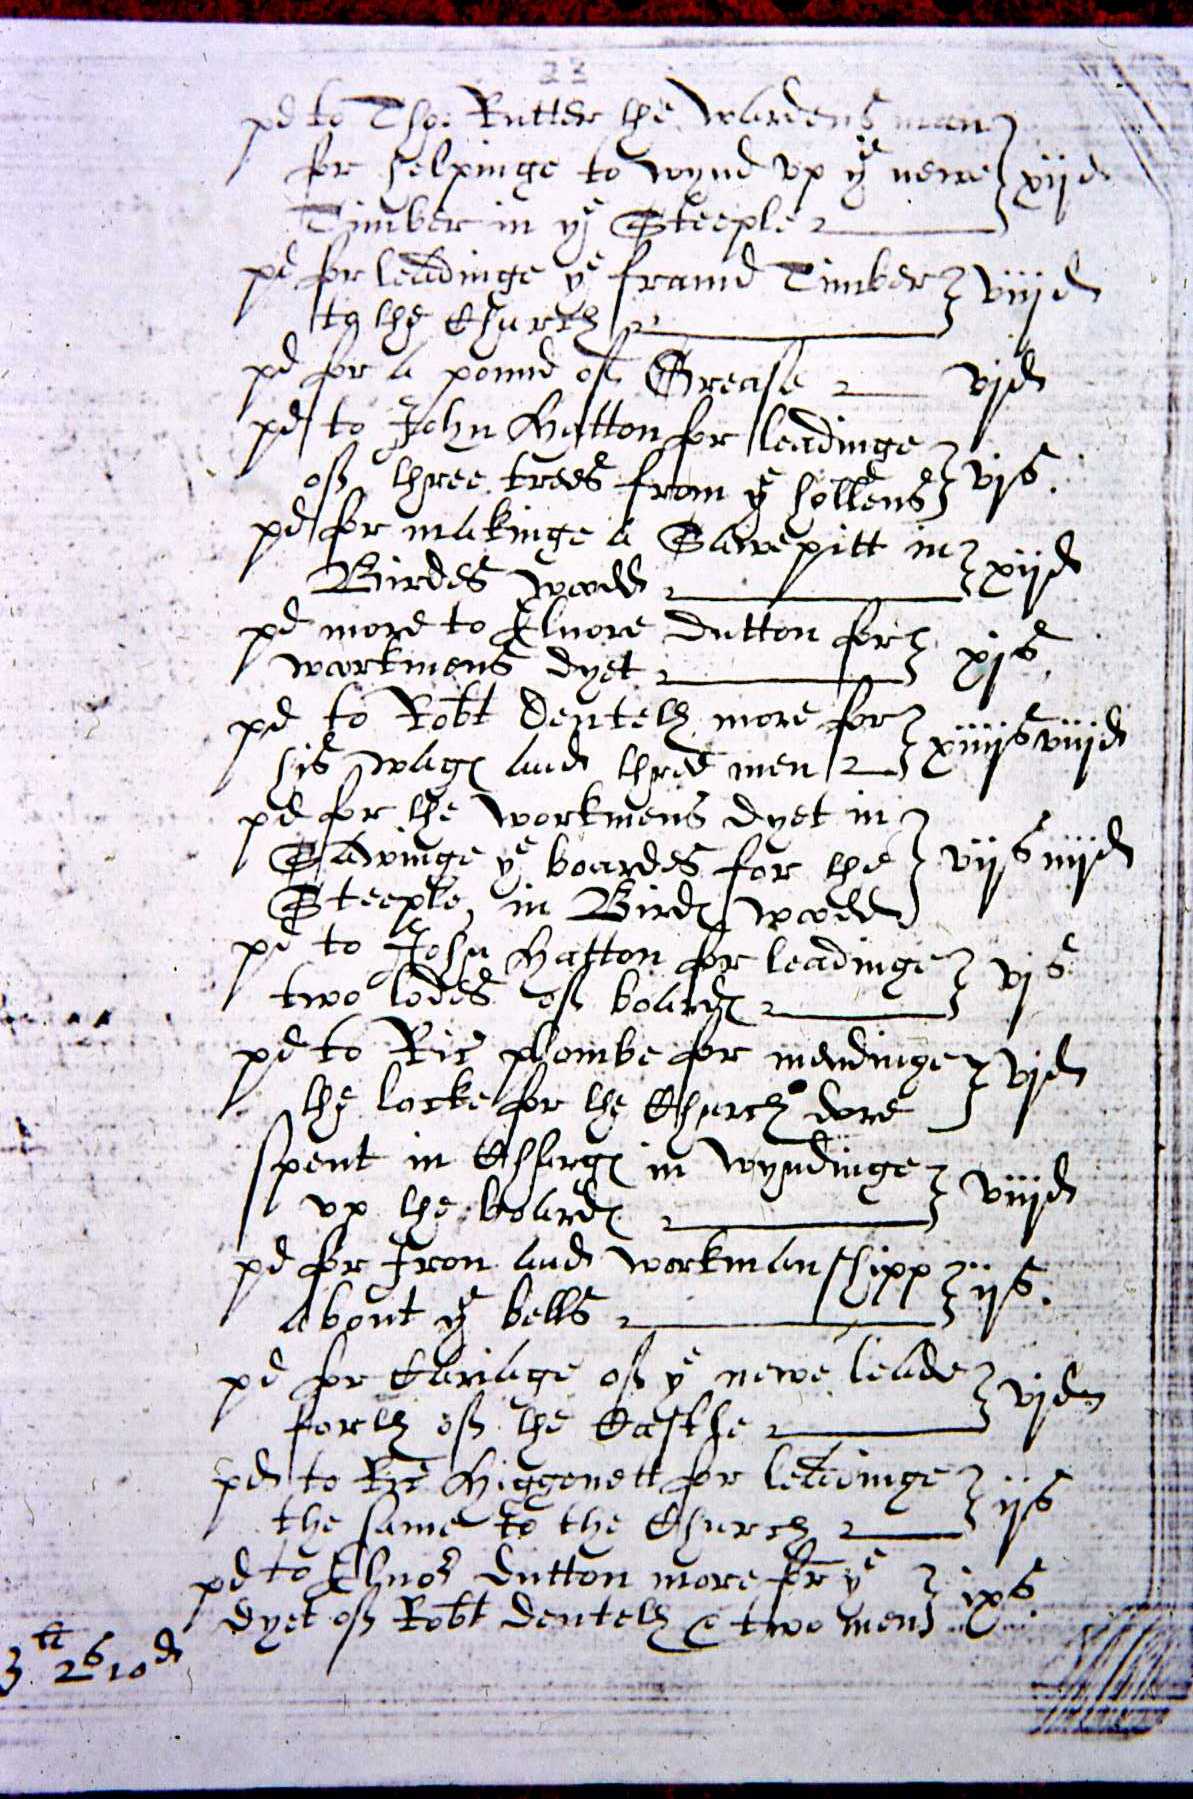 23
pd to Tho: Rutter the Wardens man
for helpinge to wynd vp ye newe xijd
Timber in ye Steeple
pd for leadinge ye framd Timber viijd
to the Church
pd for a pound of Grease vjd
pd to John Hatton for leadinge
of three trees from ye hollens vjs.
pd for makinge a Sawepitt in
Birdes wodd xijd
pd more to Elnore Dutton for
workmens dyet xjs
pd to Robt Dentith more for
his wages and three men xiiijs viijd
pd for the workmens dyet in
Sawinge ye boardes for the vijs iiijd
Steeple, in Birdes wodd
pd to John Hatton for leadinge
two lodes of boardes vjs
pd to Ric plombe for mendinge vjd
the locke for the Church dore
spent in Charges in wyndinge
vp the boardes viijd
pd for Iron and workmanshipp
about ye bells ijs.
pd for Cariage of ye newe leade
forth of the Castle vjd
pd to Ric Higgenett for leadinge
the same to the Church ijs
pd to Elnor Dutton more for ye
dyet of Robt Dentith & two men ixs
3li 2s 10d